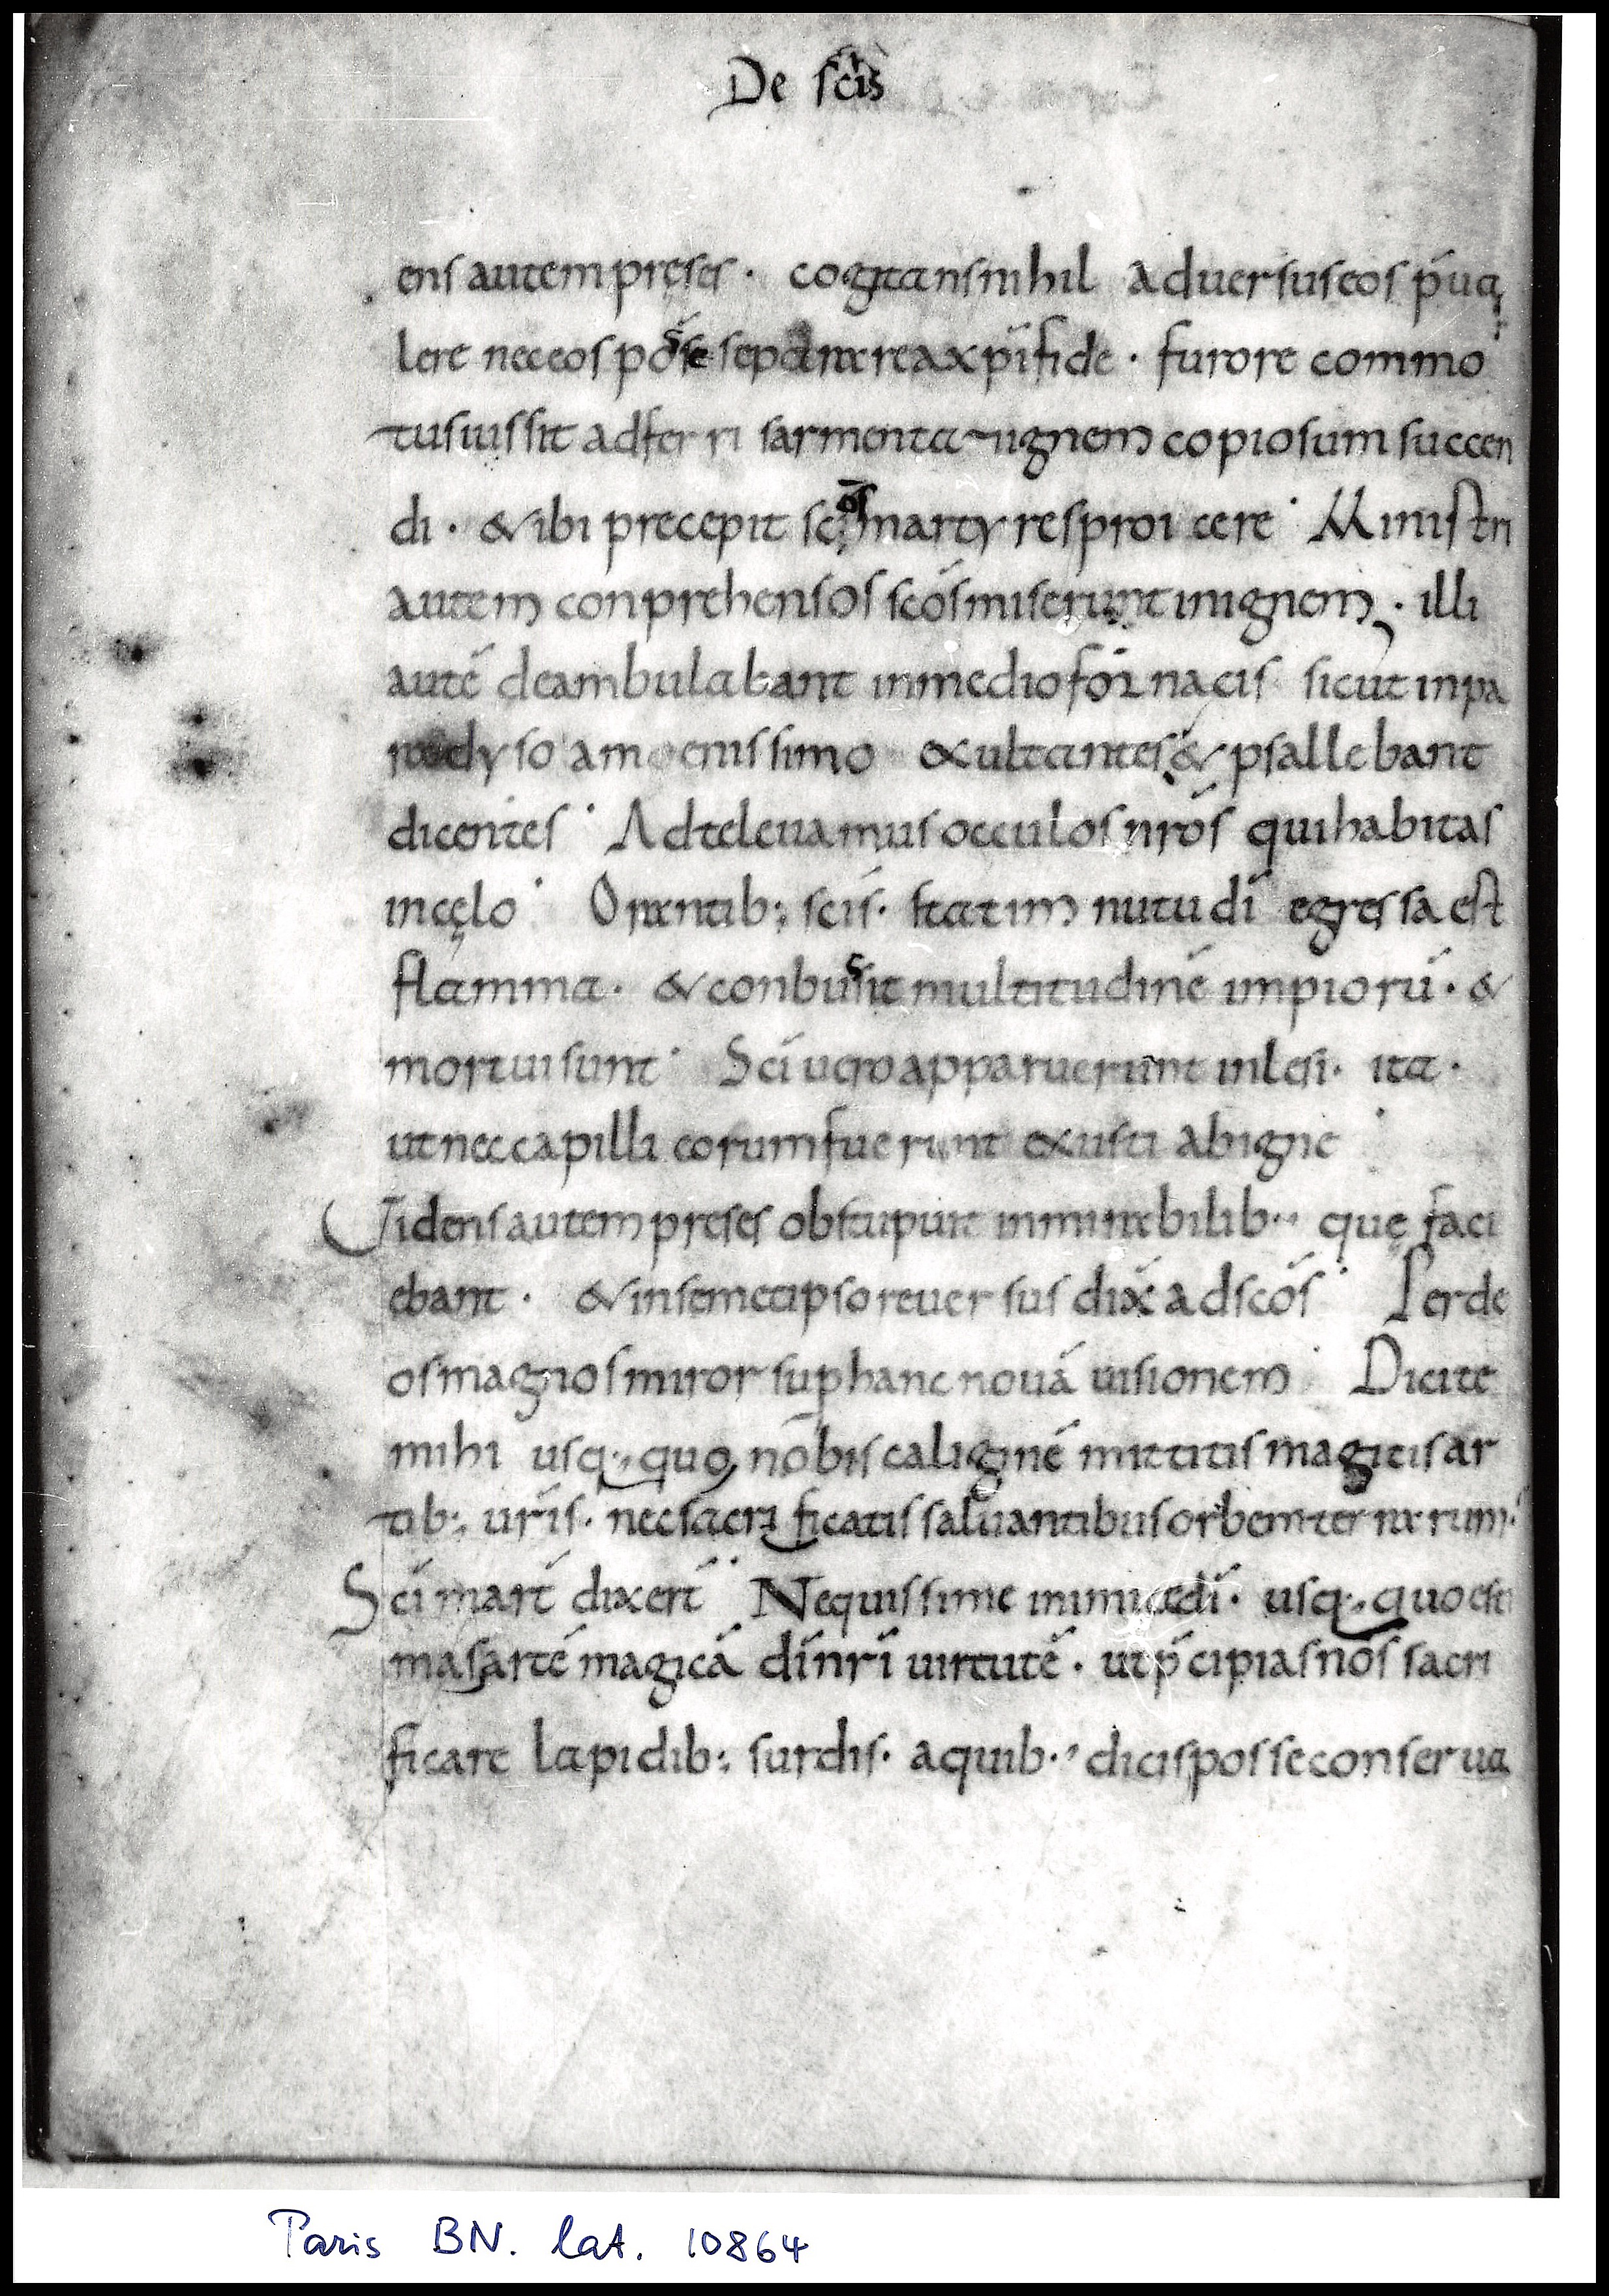 De sc̄is
ens autem preses · cogitans nihil aduersus eos p̄ua
lere nec eos posse separare a xp̄i fide · furore commo
tus iussit adferri sarmenta ignem copiosum succen
di · & ibi precepit sc̄os martyres proicere · Ministri
autem conprehensos sc̄os miserunt in ignem · illi
autē deambulabant in medio fornacis sicut in pa
radyso amoenissimo exultantes & psallebant
dicentes · Ad te leuamus occulos nr̄os qui habitas
in cęlo · Orantib; sc̄is · statim nutu dī egressa est
flamma · & conbussit multitudinē impiorū · &
mortui sunt · Sc̄i uero apparuerunt inlesi · ita ·
ut nec capilli eorum fuerunt exusti ab igne ·
Uidens autem preses obstupuit in mirabilib; quę faci
ebant · & in semetipso reuersus dix̄ ad sc̄os · Per de
os magnos miror sup hanc nouā uisionem · Dicite
mihi usq; quo nobis caliginē mittitis magicis ar
tib; ur̄is · nec sacrificatis saluantibus orbem terrarum ·
Sc̄i mar̄t dixer̄t · Nequissime inimice dī · usq; quo esti
mas artē magicā dī nr̄i uirtutē · ut p̄cipias nos sacri
ficare lapidib; surdis · a quib; dicis posse conserua
Paris BN. lat. 10864